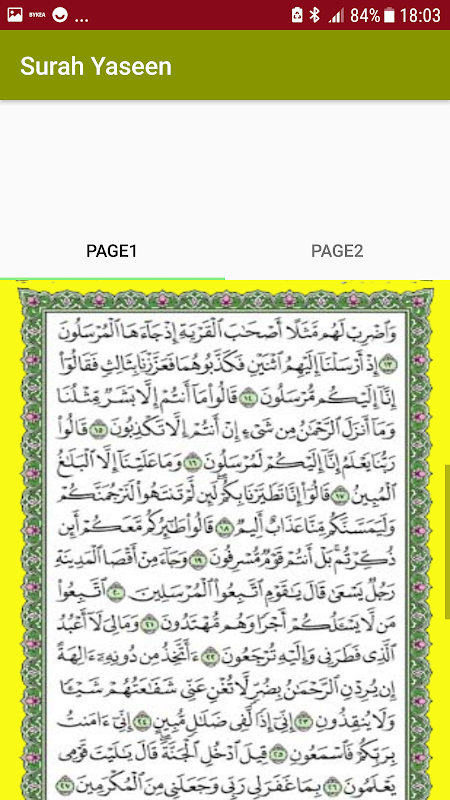 BYKEA ... 84% 18:03
Surah Yaseen
PAGE1 PAGE2
وَاضْرِبْ لَهُم مَّثَلًا أَصْحَٰبَ الْقَرْيَةِ إِذْ جَآءَهَا الْمُرْسَلُونَ
﴿١٣﴾ إِذْ أَرْسَلْنَآ إِلَيْهِمُ اثْنَيْنِ فَكَذَّبُوهُمَا فَعَزَّزْنَا بِثَالِثٍ فَقَالُوٓا۟
إِنَّآ إِلَيْكُم مُّرْسَلُونَ ﴿١٤﴾ قَالُوا۟ مَآ أَنتُمْ إِلَّا بَشَرٌ مِّثْلُنَا
وَمَآ أَنزَلَ الرَّحْمَٰنُ مِن شَىْءٍ إِنْ أَنتُمْ إِلَّا تَكْذِبُونَ ﴿١٥﴾ قَالُوا۟
رَبُّنَا يَعْلَمُ إِنَّآ إِلَيْكُمْ لَمُرْسَلُونَ ﴿١٦﴾ وَمَا عَلَيْنَآ إِلَّا الْبَلَٰغُ
الْمُبِينُ ﴿١٧﴾ قَالُوٓا۟ إِنَّا تَطَيَّرْنَا بِكُمْ لَئِن لَّمْ تَنتَهُوا۟ لَنَرْجُمَنَّكُمْ
وَلَيَمَسَّنَّكُم مِّنَّا عَذَابٌ أَلِيمٌ ﴿١٨﴾ قَالُوا۟ طَٰٓئِرُكُم مَّعَكُمْ أَئِن
ذُكِّرْتُم بَلْ أَنتُمْ قَوْمٌ مُّسْرِفُونَ ﴿١٩﴾ وَجَآءَ مِنْ أَقْصَا الْمَدِينَةِ
رَجُلٌ يَسْعَىٰ قَالَ يَٰقَوْمِ اتَّبِعُوا۟ الْمُرْسَلِينَ ﴿٢٠﴾ اتَّبِعُوا۟
مَن لَّا يَسْـَٔلُكُمْ أَجْرًا وَهُم مُّهْتَدُونَ ﴿٢١﴾ وَمَا لِىَ لَآ أَعْبُدُ
الَّذِى فَطَرَنِى وَإِلَيْهِ تُرْجَعُونَ ﴿٢٢﴾ ءَأَتَّخِذُ مِن دُونِهِۦٓ ءَالِهَةً
إِن يُرِدْنِ الرَّحْمَٰنُ بِضُرٍّ لَّا تُغْنِ عَنِّى شَفَٰعَتُهُمْ شَيْـًٔا
وَلَا يُنقِذُونِ ﴿٢٣﴾ إِنِّىٓ إِذًا لَّفِى ضَلَٰلٍ مُّبِينٍ ﴿٢٤﴾ إِنِّىٓ ءَامَنتُ
بِرَبِّكُمْ فَاسْمَعُونِ ﴿٢٥﴾ قِيلَ ادْخُلِ الْجَنَّةَ قَالَ يَٰلَيْتَ قَوْمِى
يَعْلَمُونَ ﴿٢٦﴾ بِمَا غَفَرَ لِى رَبِّى وَجَعَلَنِى مِنَ الْمُكْرَمِينَ ﴿٢٧﴾